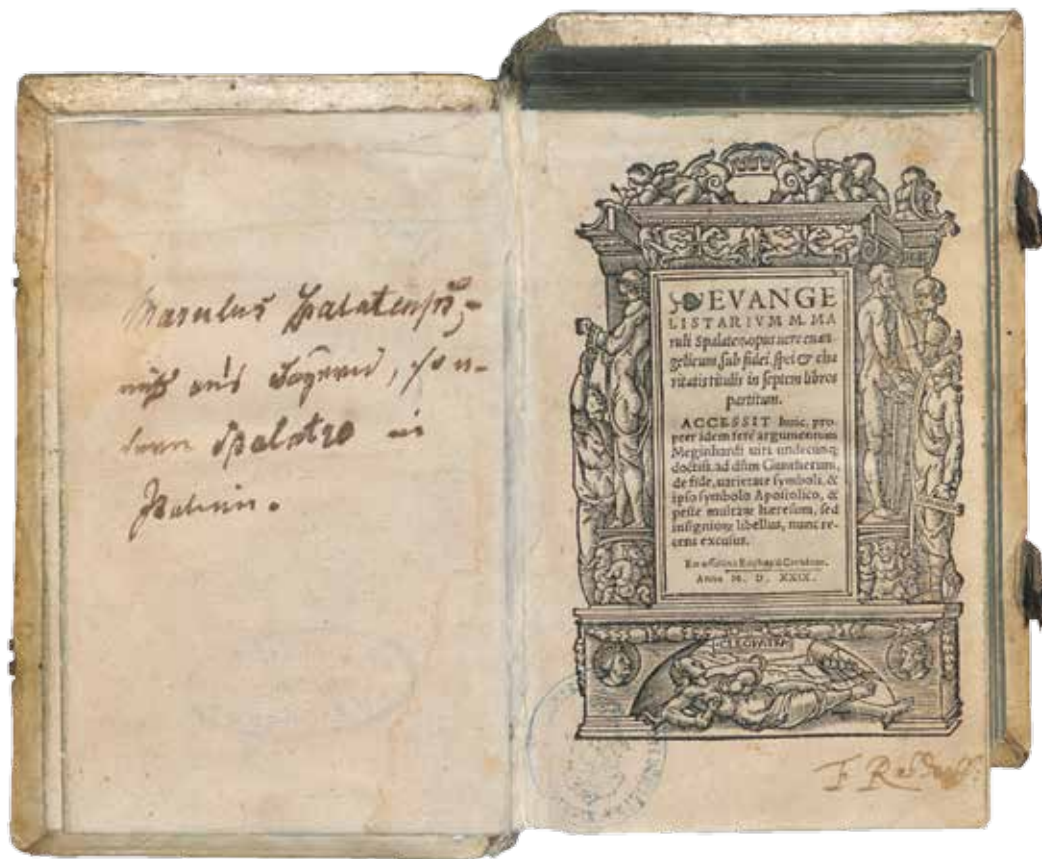 Marulus Spalatensis,
nicht aus Bayern, son-
dern Spalatro in
Italien.
EVANGE
LISTARIVM M. MA
ruli Spalaten. opus uere euan-
gelicum, sub fidei, spei & cha
ritatis titulis in septem libros
partitum.
ACCESSIT huic, pro-
pter idem ferè argumentum
Meginhardi uiri undecunq;
doctiss. ad dñm Guntherum,
de fide, uarietate symboli, &
ipso symbolo Apostolico, &
peste multarum hæresum, sed
insignium libellus, nunc re-
cens excusus.
Anno M. D. XXIX.
CLEOPATRA